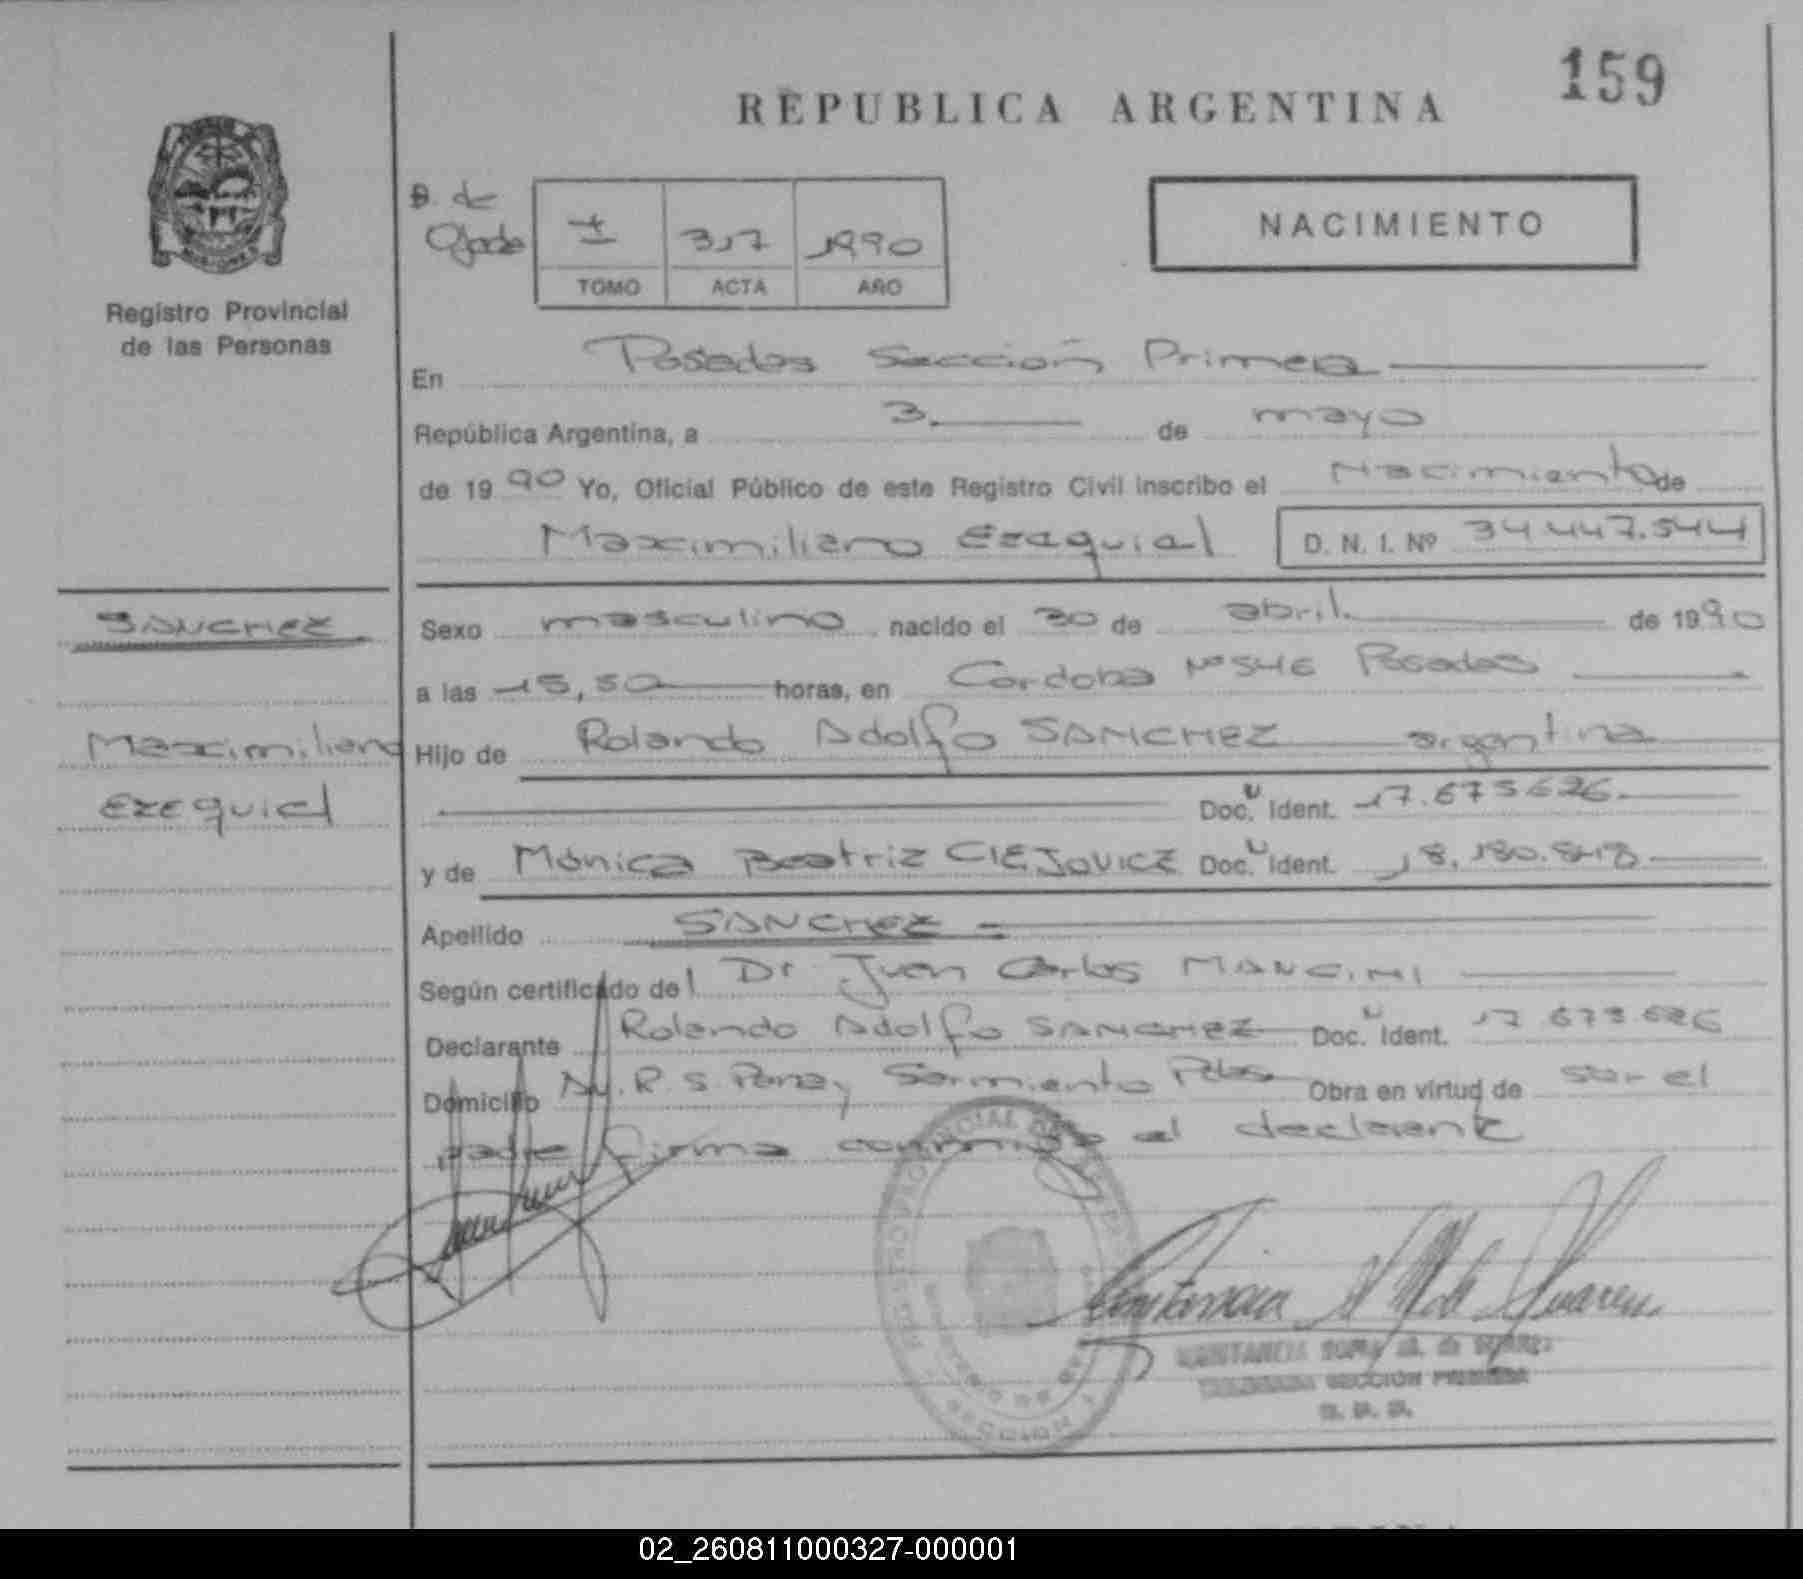 159
REPUBLICA ARGENTINA
B. de
I 317 1990
TOMO ACTA AÑO
NACIMIENTO
Registro Provincial
de las Personas
En Posadas Sección Primera
República Argentina, a 3. de mayo
de 1990 Yo, Oficial Público de este Registro Civil inscribo el Nacimiento de
Maximiliano Ezequiel D. N. I. Nº 34.447.544
SANCHEZ
Maximiliano
Ezequiel
Sexo masculino nacido el 30 de abril. de 1990
a las 15,50 horas, en Córdoba Nº 546 Posadas
Hijo de Rolando Adolfo SANCHEZ argentina
Doc. U Ident. 17.673.626
y de Mónica Beatriz CIEJOVICZ Doc. U Ident. 18.180.848
Apellido SANCHEZ
Según certificado del Dr Juan Carlos MANCINI
Declarante Rolando Adolfo SANCHEZ Doc. U Ident. 17.673.626
Domicilio Av. R. S. Peña y Sarmiento Pdas Obra en virtud de ser el
padre firma conmigo el declarante
SECCION PRIMERA
02_260811000327-000001